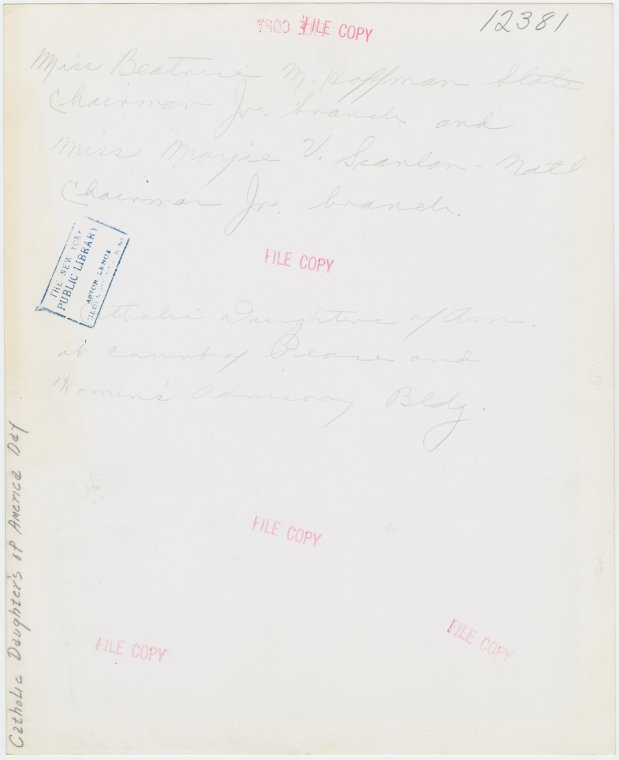 FILE COPY
FILE COPY
12381
Miss Beatrice M. Hoffman State
Chairman Jr. branch and
Miss Marjie V. Scanlon - Nat'l
Chairman Jr. branch.
THE NEW YORK
PUBLIC LIBRARY
ASTOR LENOX
FILE COPY
Catholic Daughters of Am.
at Court of Peace and
Women's Advisory Bldg.
FILE COPY
FILE COPY
FILE COPY
Catholic Daughter's of America Day